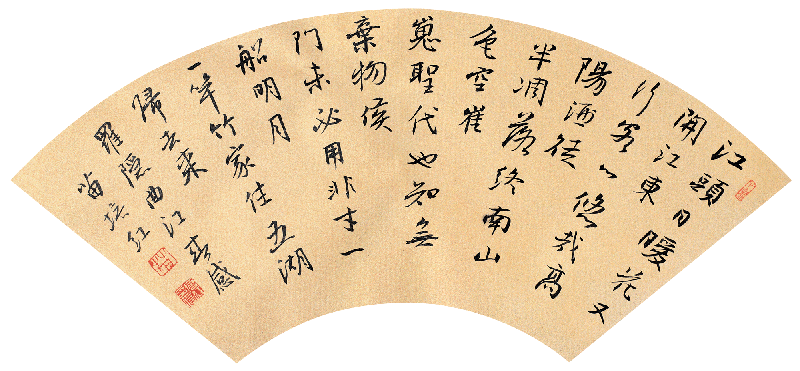 江頭日暖花又
開江東
行客心悠哉高
陽酒徒
半凋落終南山
色空崔
嵬聖代也知無
棄物侯
門未必用非才一
船明月
一竿竹家住五湖
歸去來
羅隱曲江春感